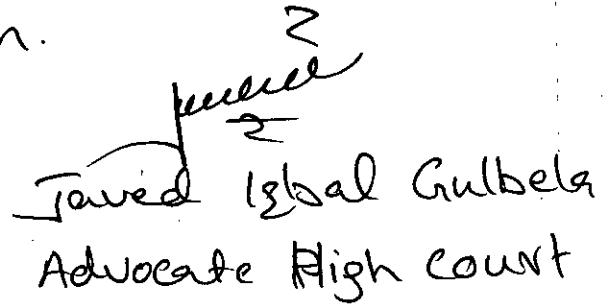 n.
Javed Iqbal Gulbela
Advocate High Court